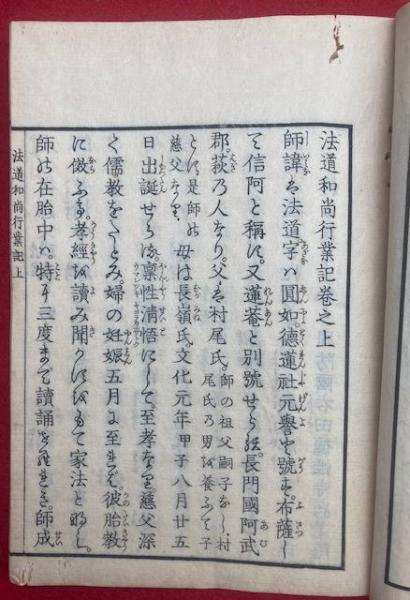 法道和尚行業記卷之上
師諱ハ法道字ハ圓如。德蓮社元譽と號す。布薩し
て信阿と稱に。又蓮菴と別號せらる。長門國阿武
郡。萩乃人なり。父は村尾氏。師の祖父嗣子なし。村尾氏乃男を養ふて子
とに是師の慈父なり。母は長嶺氏。文化元年甲子八月廿五
日出誕せらる。稟性淸悟にして。至孝なり慈父深
く儒教をたとみ。婦の妊娠五月に至れば。彼胎教
に倣ふる。孝經を讀み聞かにをもて家法と明し。
師の在胎中ハ。特に三度まで讀誦せられき。師成
法道和尚行業記上